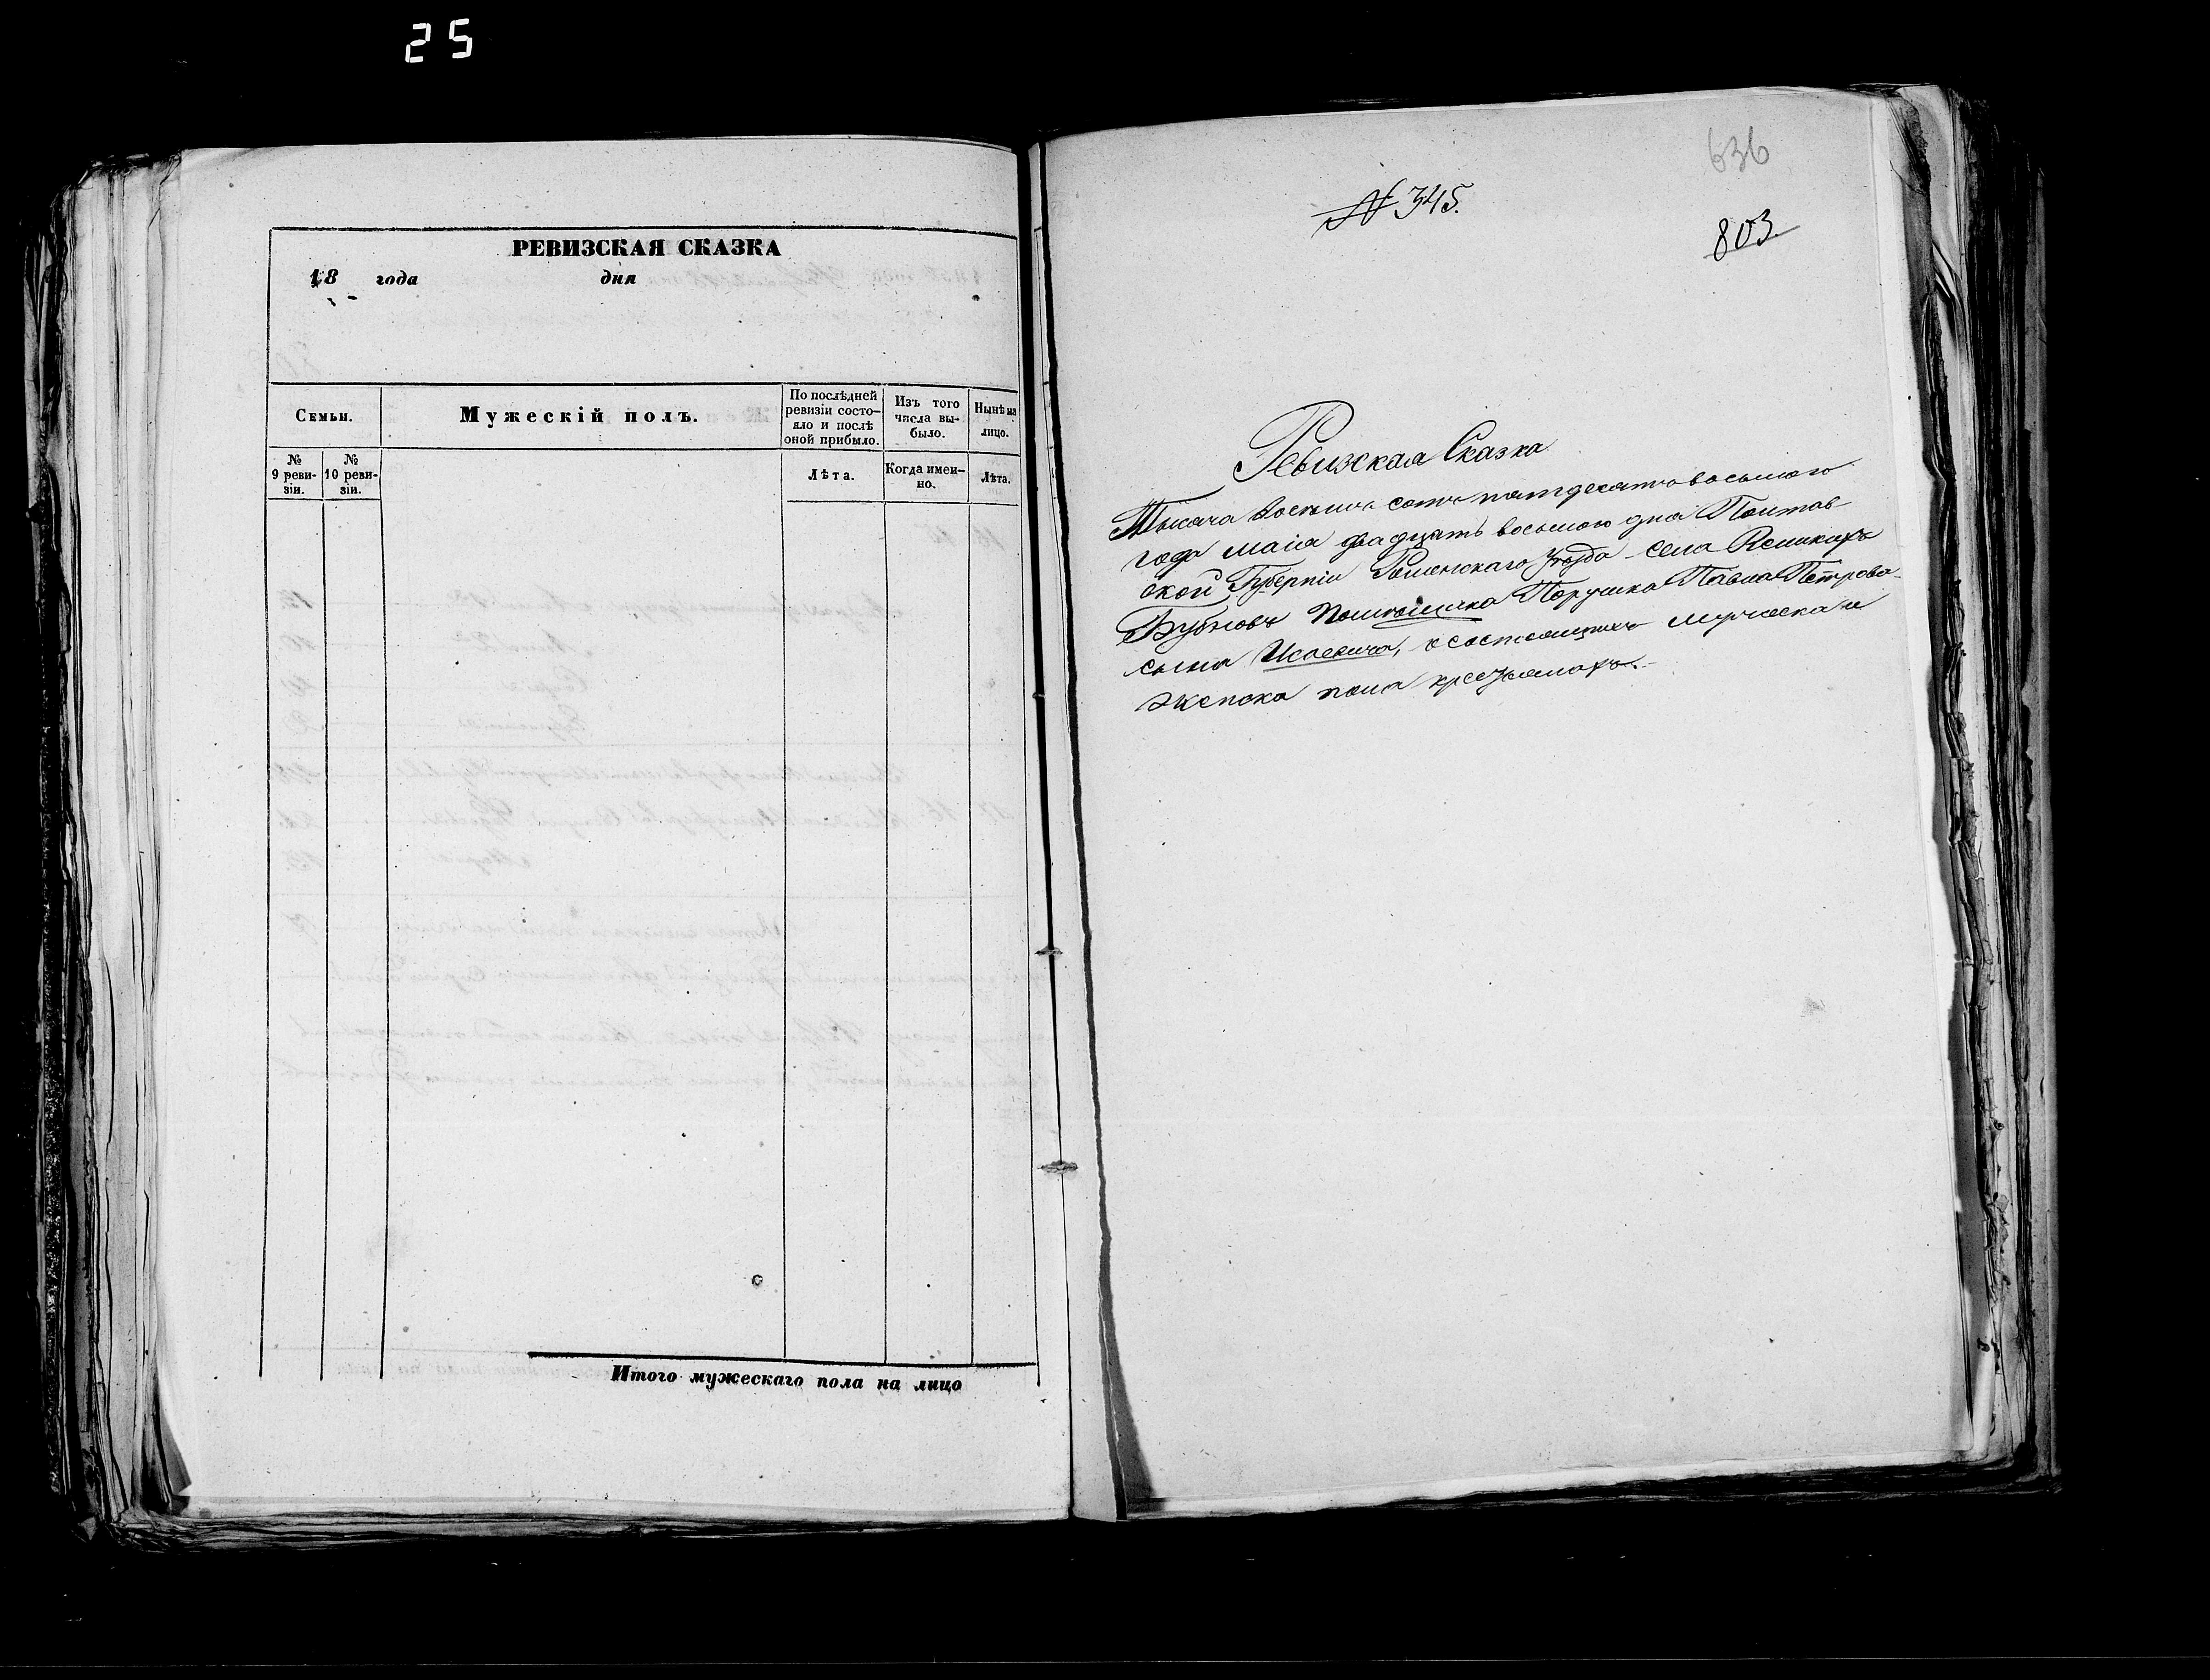 25
РЕВИЗСКАЯ СКАЗКА
18 года дня
Семьи.
Мужескій полъ.
По послѣдней ревизіи состо-
яло и послѣ оной прибыло.
Изъ того числа вы-
было.
Нынѣ на лицо.
№ 9 реви-
зіи.
№ 10 реви-
зіи.
Лѣта.
Когда имен-
но.
Лѣта.
Итого мужескаго пола на лицо
636
№ 345.
803
Ревизская Сказка
Тысяча восемь сотъ пятдесятъ восьмого
года маіа двадцать восьмого дня Полтав-
ской Губерніи Роменскаго Уѣзда села
Бубновъ помѣщика Поручика Павла Петрова
сына Исаевича, о состоящихъ мужеска и
женска пола крестьянахъ.